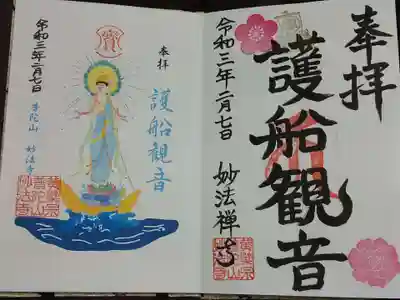 奉拝
護船観音
令和三年二月七日
妙法禅寺
奉拝
護船観音
令和三年二月七日
普陀山 妙法寺
黄檗宗
普陀山
妙法寺